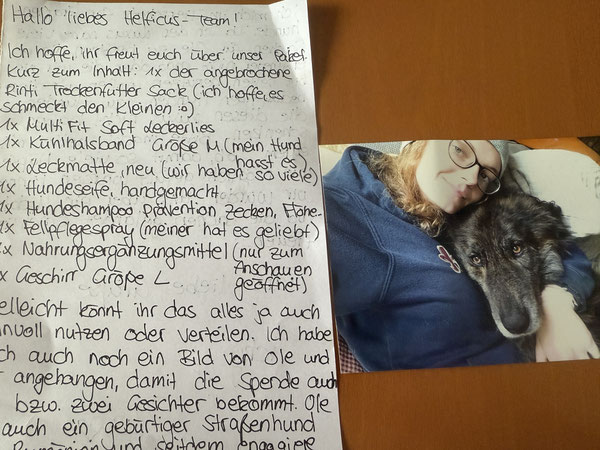 Hallo liebes Helficus-Team!
Ich hoffe, ihr freut euch über unser Paket.
Kurz zum Inhalt: 1x der angebrochene
Rinti Trockenfutter Sack (ich hoffe, es
schmeckt den Kleinen :o)
1x MultiFit Soft Leckerlies
1x Kühlhalsband Größe M (mein Hund
hasst es)
1x Leckmatte, neu (wir haben so viele)
1x Hundeseife, handgemacht
1x Hundeshampoo Prävention, Zecken, Flöhe
1x Fellpflegespray (meiner hat es geliebt)
x Nahrungsergänzungsmittel (nur zum
Anschauen
geöffnet)
x Geschirr Größe L
elleicht könnt ihr das alles ja auch
nvoll nutzen oder verteilen. Ich habe
ch auch noch ein Bild von Ole und
angehangen, damit die Spende auch
bzw. zwei Gesichter bekommt. Ole
auch ein gebürtiger Straßenhund
und seitdem engagiere